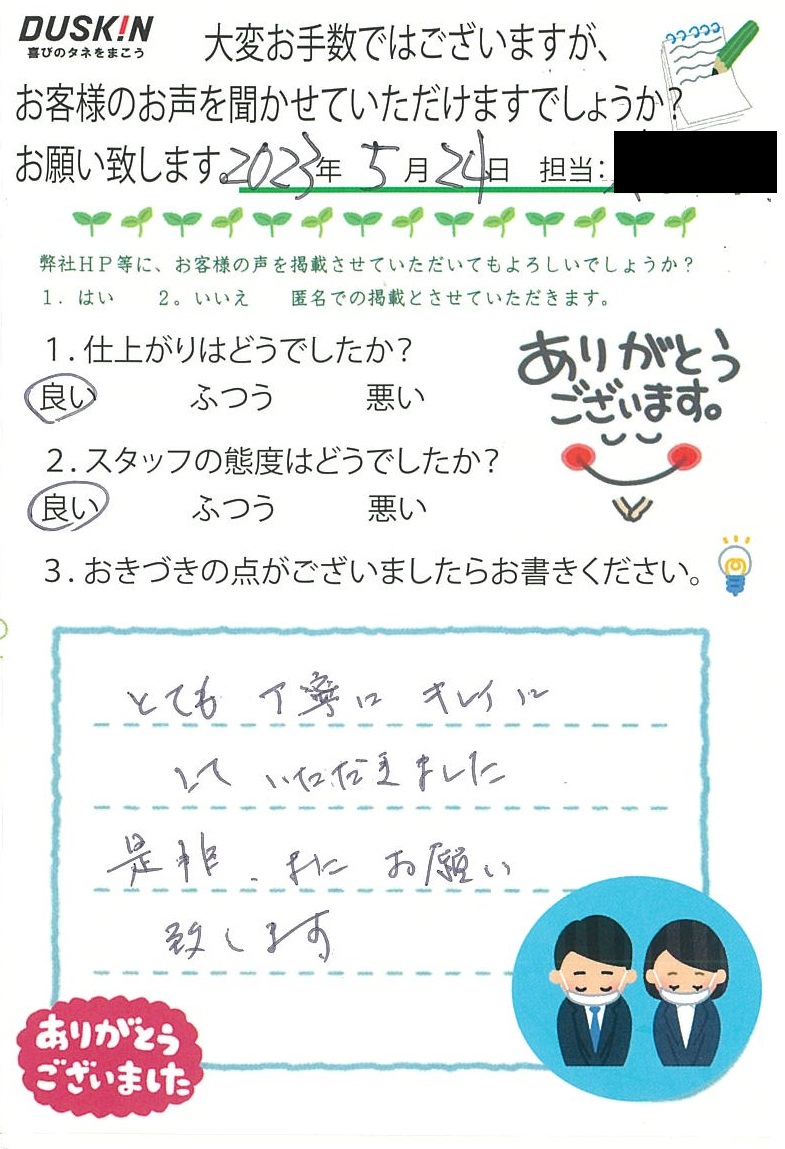 DUSKIN
喜びのタネをまこう
大変お手数ではございますが、
お客様のお声を聞かせていただけますでしょうか?
お願い致します。2023年 5月24日 担当:
弊社HP等に、お客様の声を掲載させていただいてもよろしいでしょうか?
1. はい 2。いいえ 匿名での掲載とさせていただきます。
1.仕上がりはどうでしたか?
良い ふつう 悪い
ありがとう
ございます。
2.スタッフの態度はどうでしたか?
良い ふつう 悪い
3.おきづきの点がございましたらお書きください。
とても 丁寧に キレイに
して いただきました
是非、またお願い
致します
ありがとう
ございました